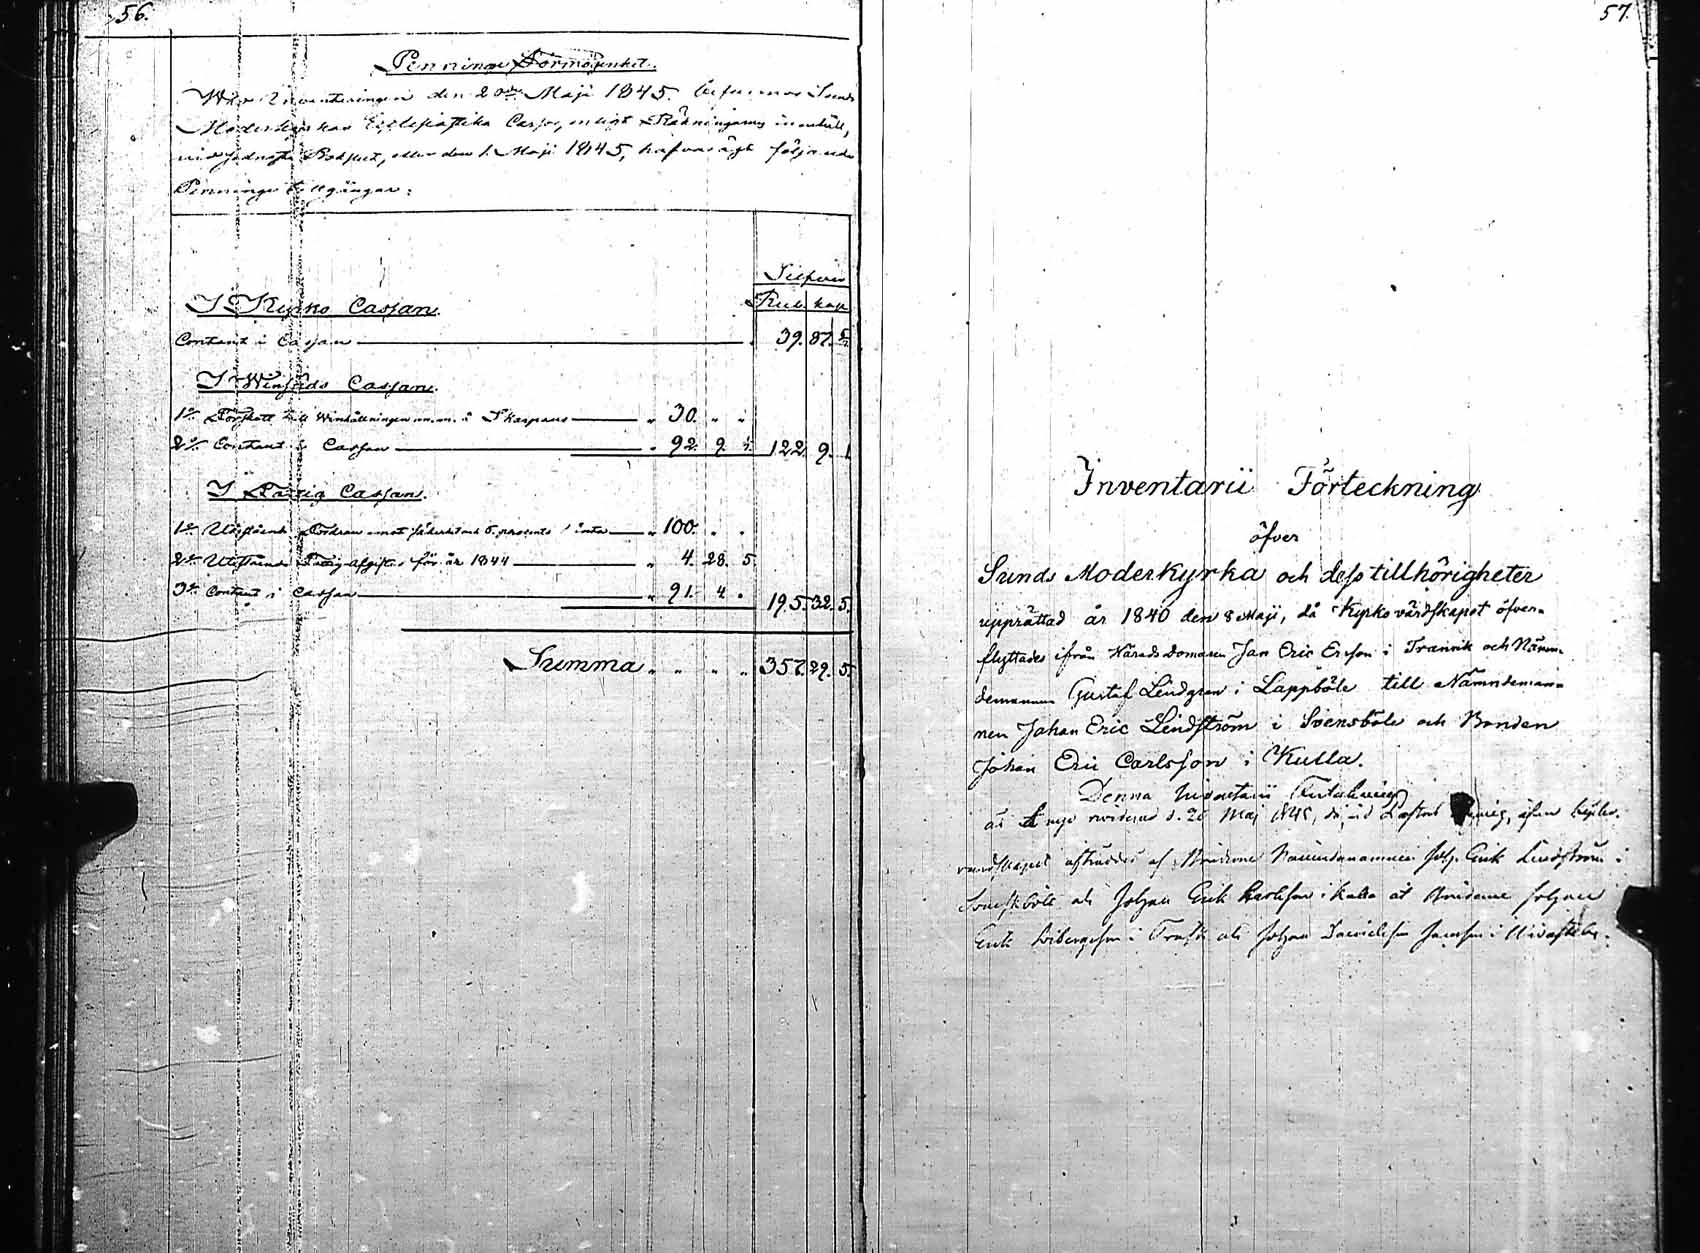 56.
Penninge Förmögenhet.
Wid Inventeringen den 20de Maji 1845. befunnos Sunds
Moderkyrkas Ecclesiastika Cassor, enligt Räkningarnes innehåll,
vid sednaste Bokslut, eller den 1. Maji 1845, hafva ägt följande
Penninge tillgångar:
Silfver
I Kyrko Cassan. Rub. kop.
Contant i Cassan 39. 87.
I Winsäds Cassan.
1o Förskott till Winhållningen m.m. i Skarpans " 30. " "
2o Contant i Cassan " 92. 9. 122. 9. 1.
I Fattig Cassan.
1o Utestående Fordran emot 5. procents ränta " 100. " "
2o Utestående Fattig afgifter för år 1844 " 4. 28. 5.
3o Contant i Cassan " 91. 4. " 195. 32. 5.
Summa " " " " 357. 29. 5.
57.
Inventarii Förteckning
öfver
Sunds Moderkyrka och dess tillhörigheter
upprättad år 1840 den 8 Maji, då Kyrkovärdskapet öfver-
flyttades ifrån Häradsdomaren Jan Eric Ersson i Tranvik och Nämn-
demannen Gustaf Lindgren i Lappböle till Nämndeman-
nen Johan Eric Lindström i Svensböle och Bonden
Johan Eric Carlsson i Kulla.
Denna Inventarii Förteckning
är å nyo reviderad d. 20 Maj 1845, då vid äfven kyrko-
vardskapet afträddes af Nämndemannen Joh. Erik Lindström i
Svensböle och Johan Erik Karlsson i Kulla åt Johan
Erik i och Johan Jansson i